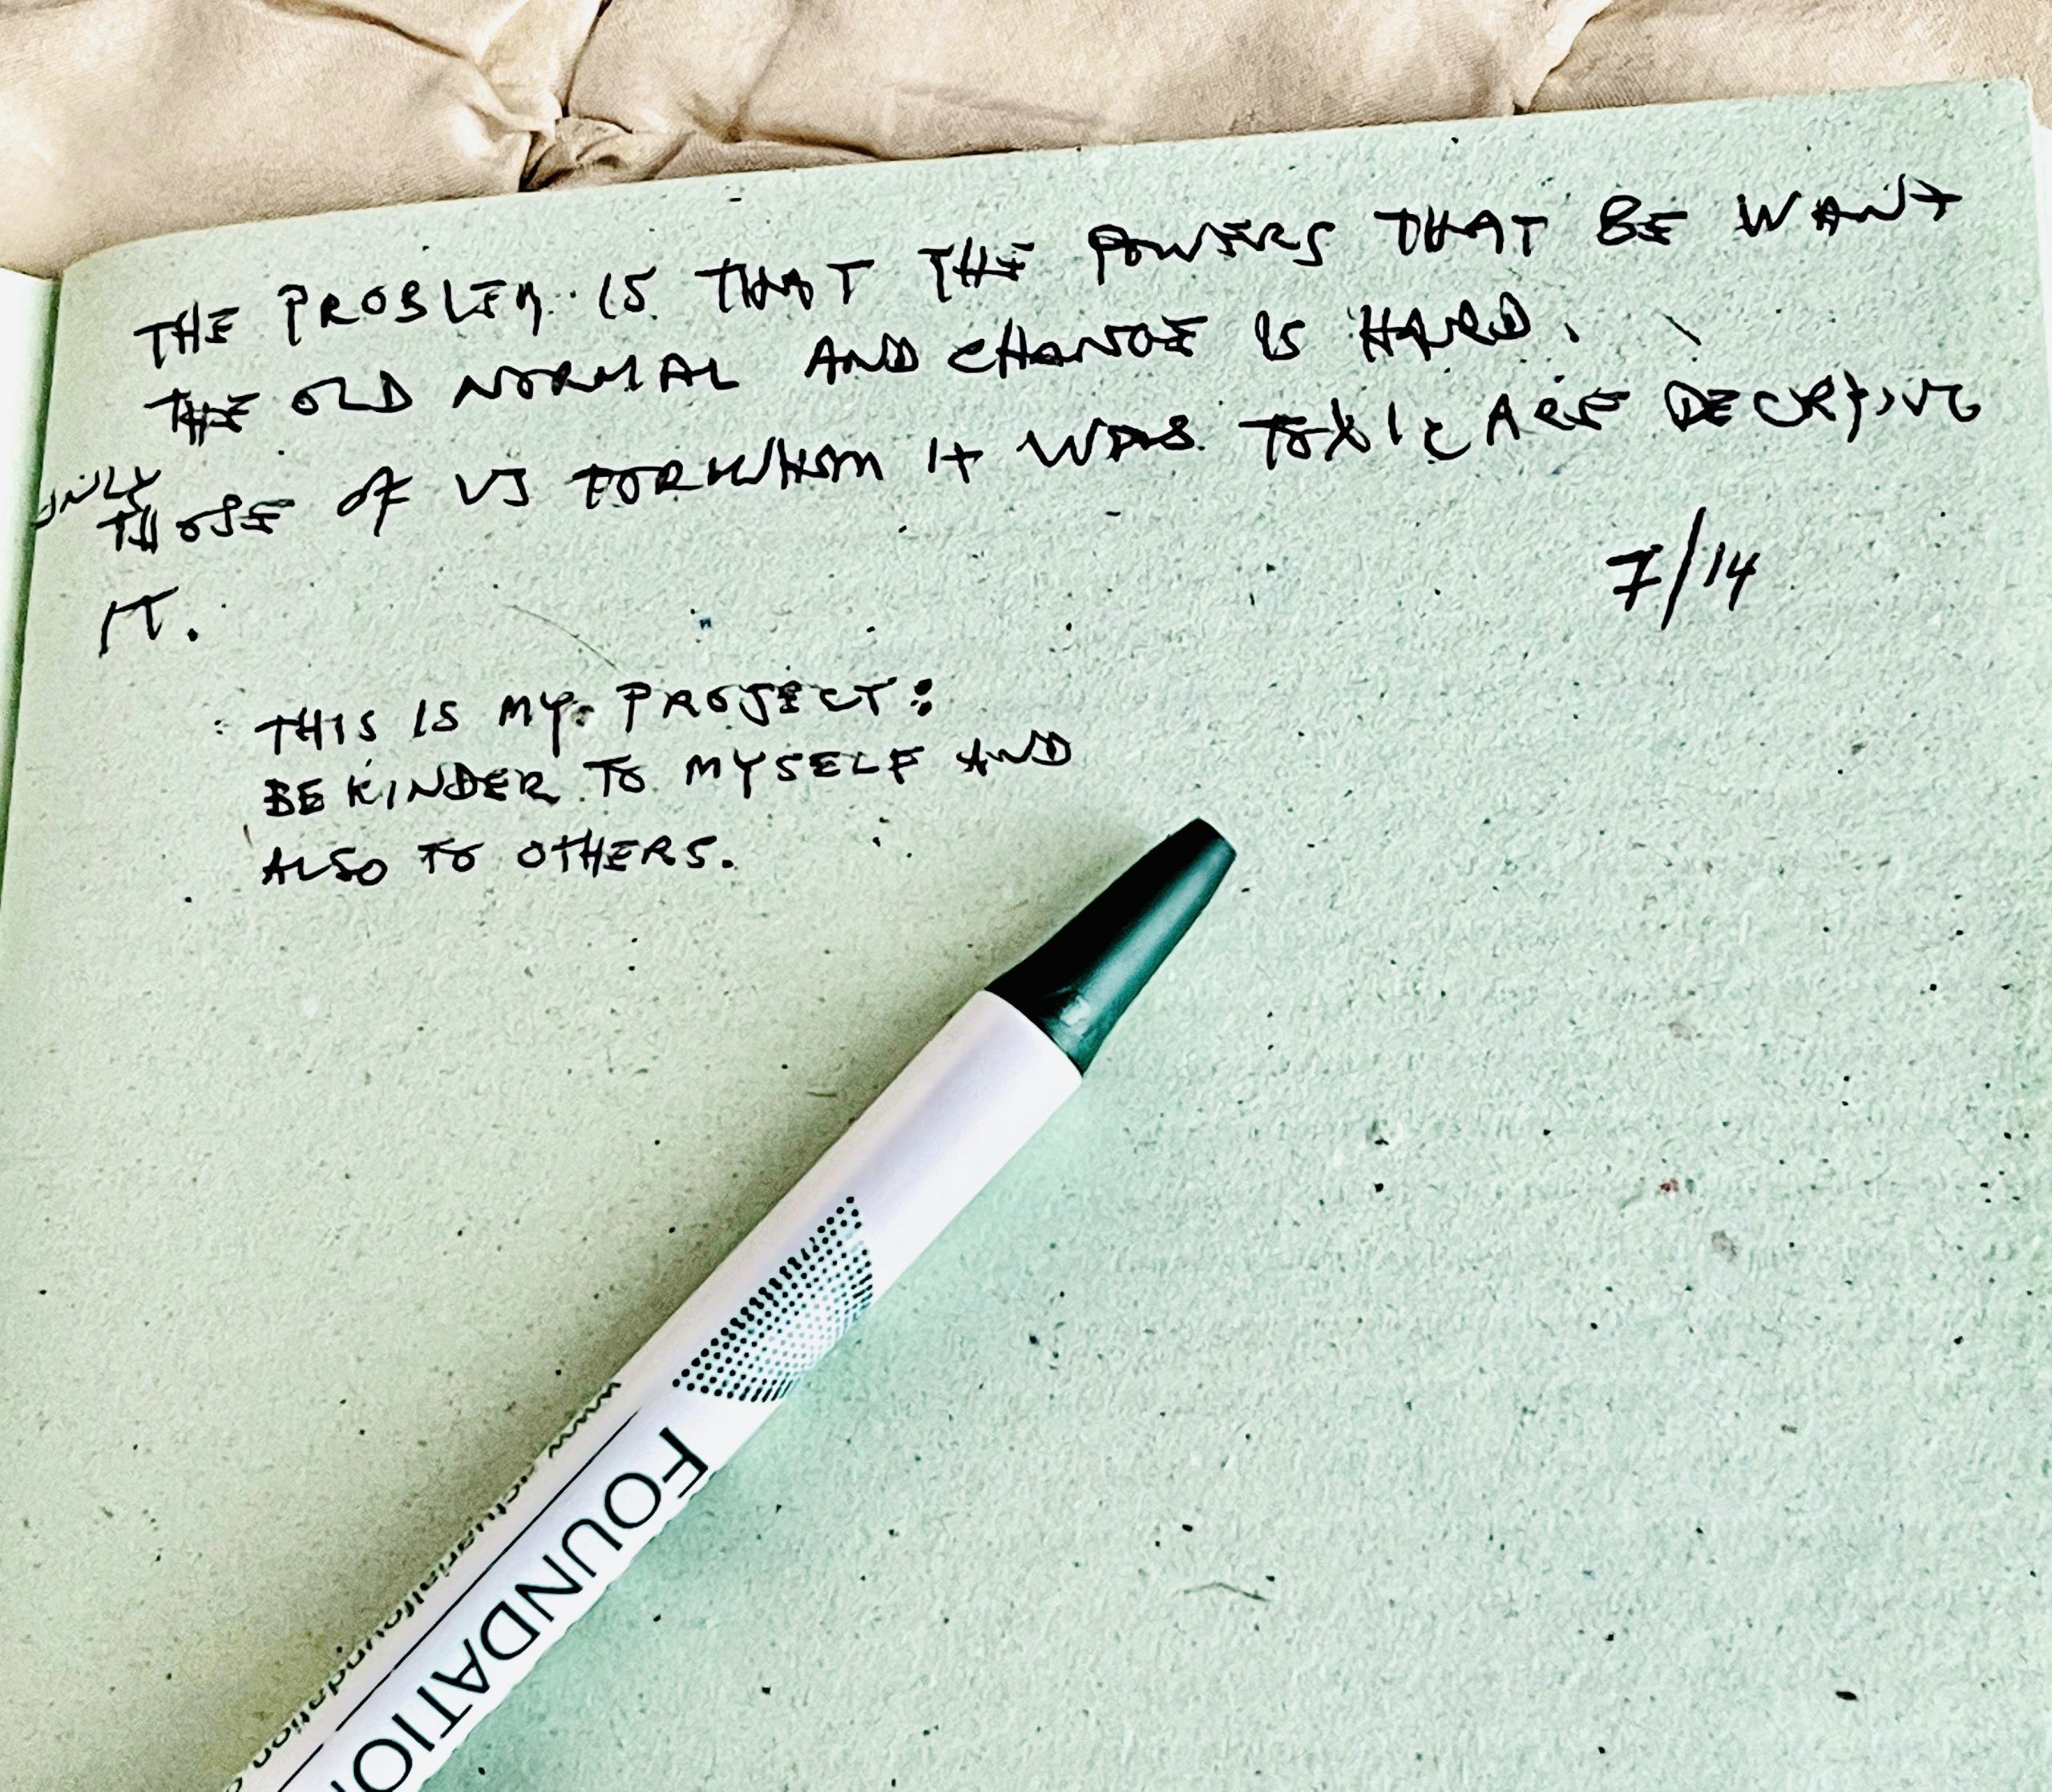 THE PROBLEM IS THAT THE POWERS THAT BE WANT
THE OLD NORMAL AND CHANGE IS HARD.
ONLY
THOSE OF US FOR WHOM IT WAS TOXIC ARE DECRYING
IT.
7/14
THIS IS MY PROJECT:
BE KINDER TO MYSELF AND
ALSO TO OTHERS.
FOUNDATIO
www